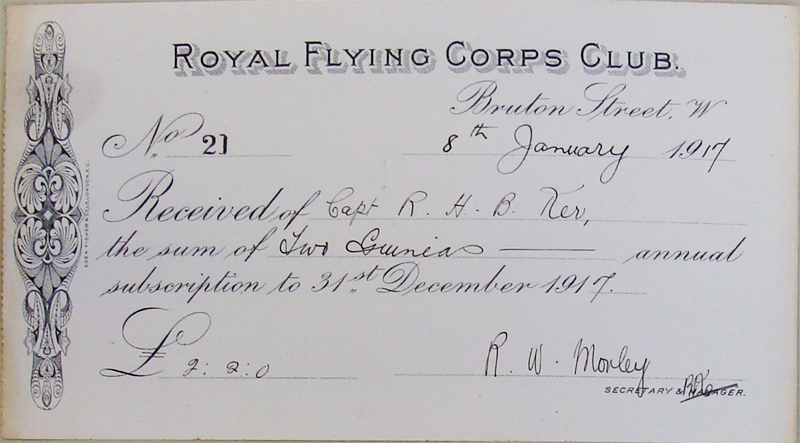 ROYAL FLYING CORPS CLUB.
Bruton Street, W
No. 21 8th January 1917
Received of Capt R. H. B. Ker,
the sum of Two Guineas annual
subscription to 31st December 1917.
£ 2: 2: 0
R. W. Morley
SECRETARY &
EDEN FISHER & CO LD. LONDON. E.C.